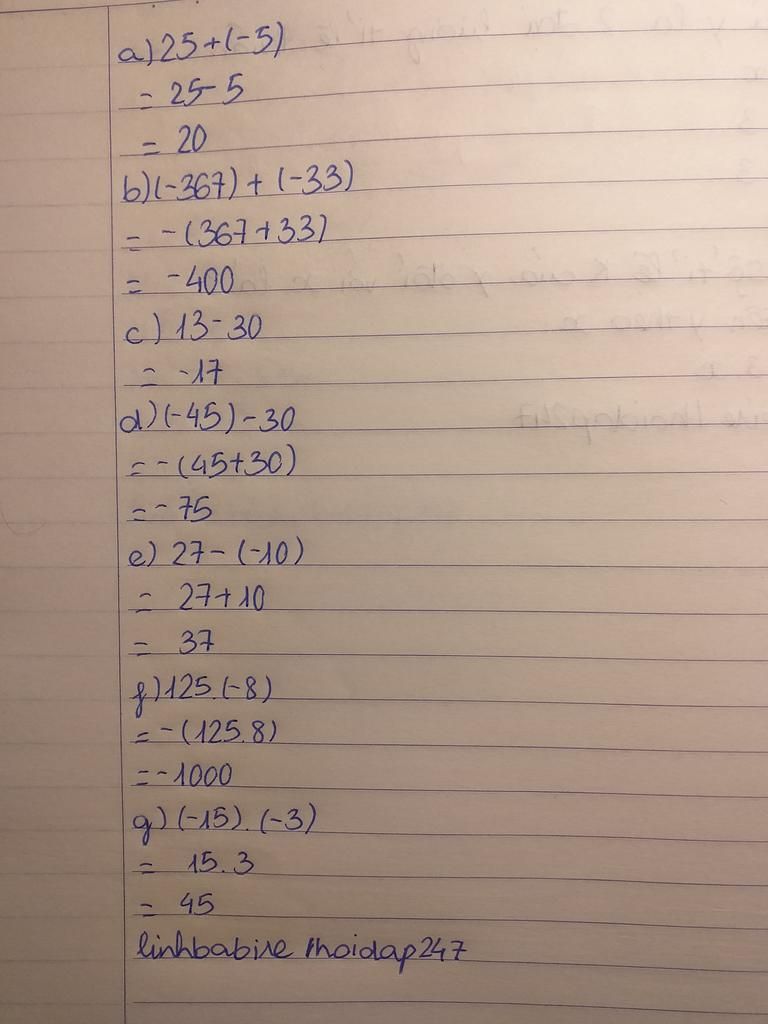 a) 25 + (-5)
= 25 - 5
= 20
b) (-367) + (-33)
= -(367 + 33)
= -400
c) 13 - 30
= -17
d) (-45) - 30
= -(45 + 30)
= -75
e) 27 - (-10)
= 27 + 10
= 37
f) 125.(-8)
= -(125.8)
= -1000
g) (-15).(-3)
= 15.3
= 45
linhbabise /hoidap247